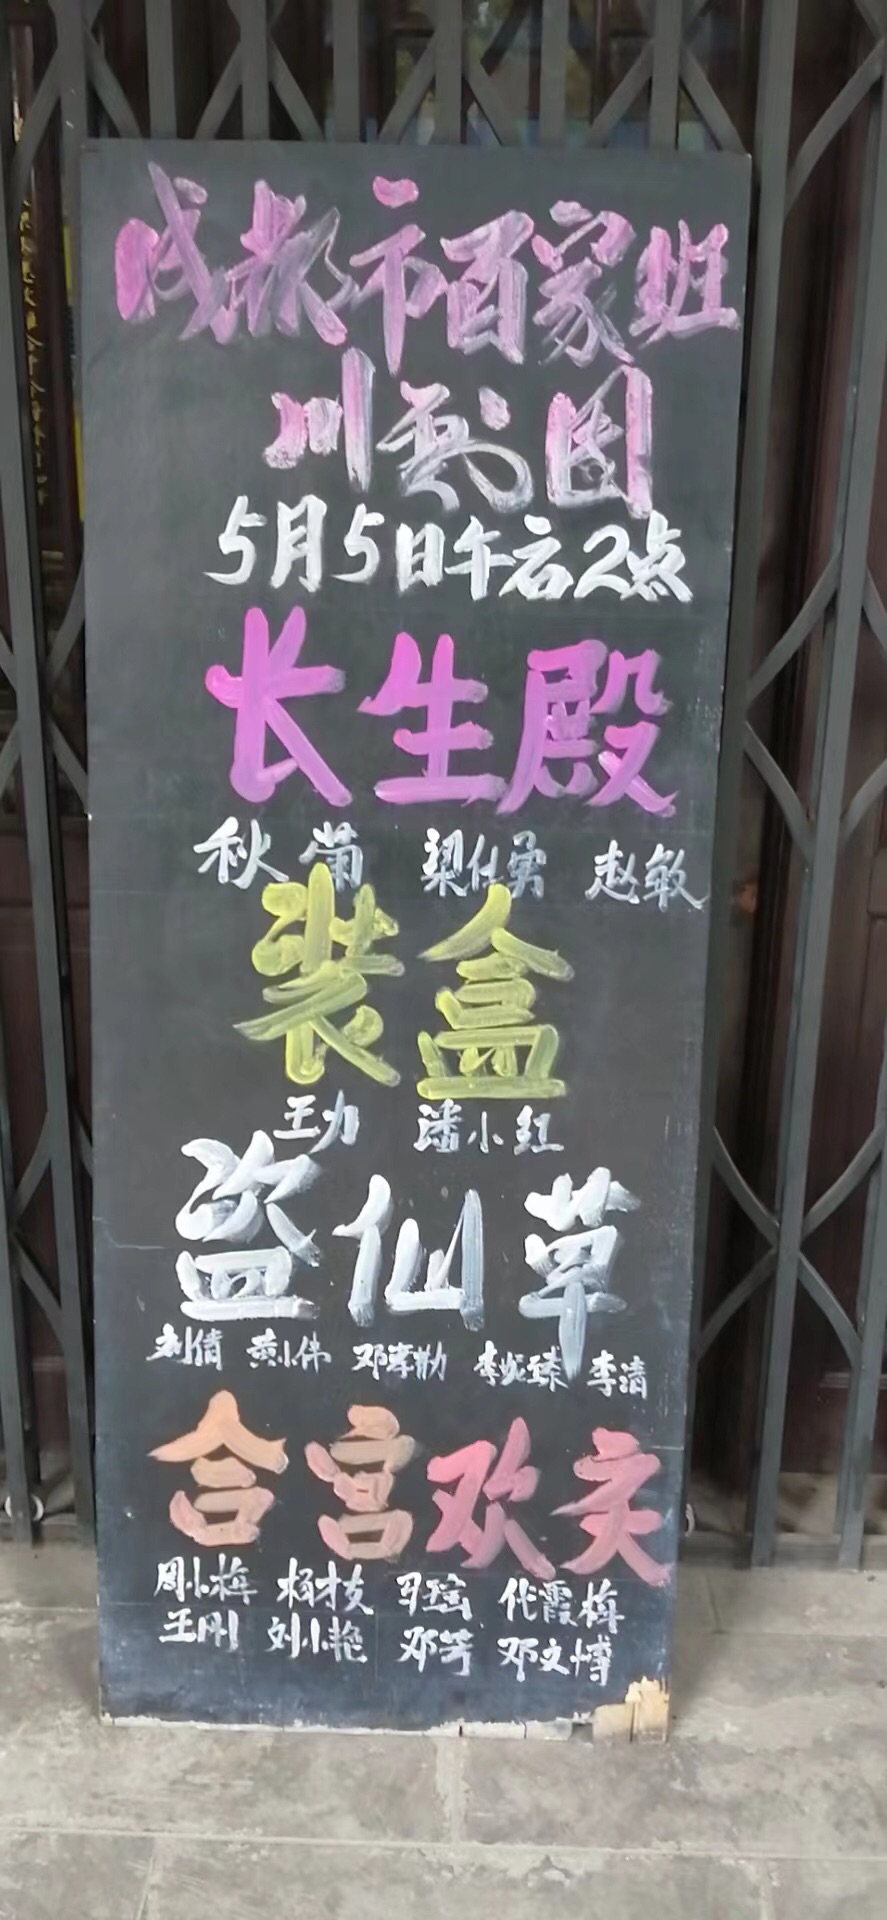 成都市百家班
川剧团
5月5日午后2点
长生殿
秋菊 梁仕勇 赵敏
装盒
王力 潘小红
盗仙草
刘倩 黄小伟 邓孝勤 李妮臻 李清
合宫欢庆
周小梅 杨才友 马瑶 代霞梅
王刚 刘小艳 邓芳 邓文博